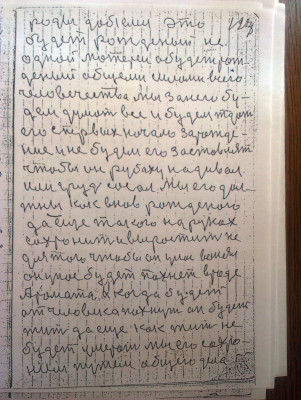 роды добьемся Это 119
будет рожденый не
одной матерей а будет рож
деный общими силами всего
человечества Мы за него бу-
дем думать все и будем ждать
его с первых начало зарожде-
ние и не будим его заставлят
чтобы он рубаху надивал
или грудь сосал. Мы его дол-
жны как внов рожденого
да еще такого на руках
сохронит и виростит не
для того чтобы он умер вонял
он у нас будет пахнет вроде
Аромата, А когда будет
от человека пахнути он будет
жит да еще как жит не
будет умерат мы его сохро-
ним путем общего дела